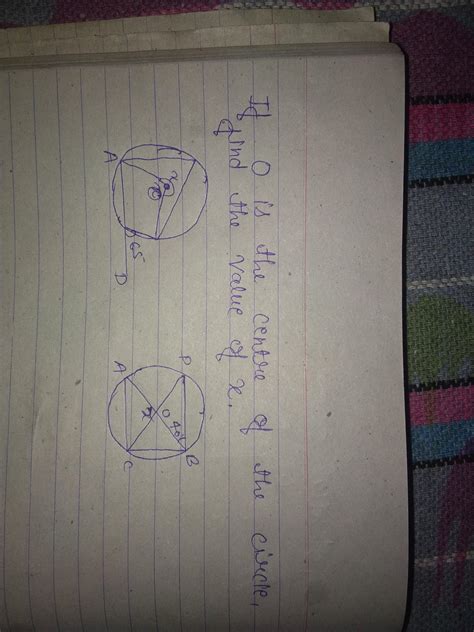 If O is the centre of the circle,
find the value of x.
A
x
65
D
P
A
O
40°
x
B
C